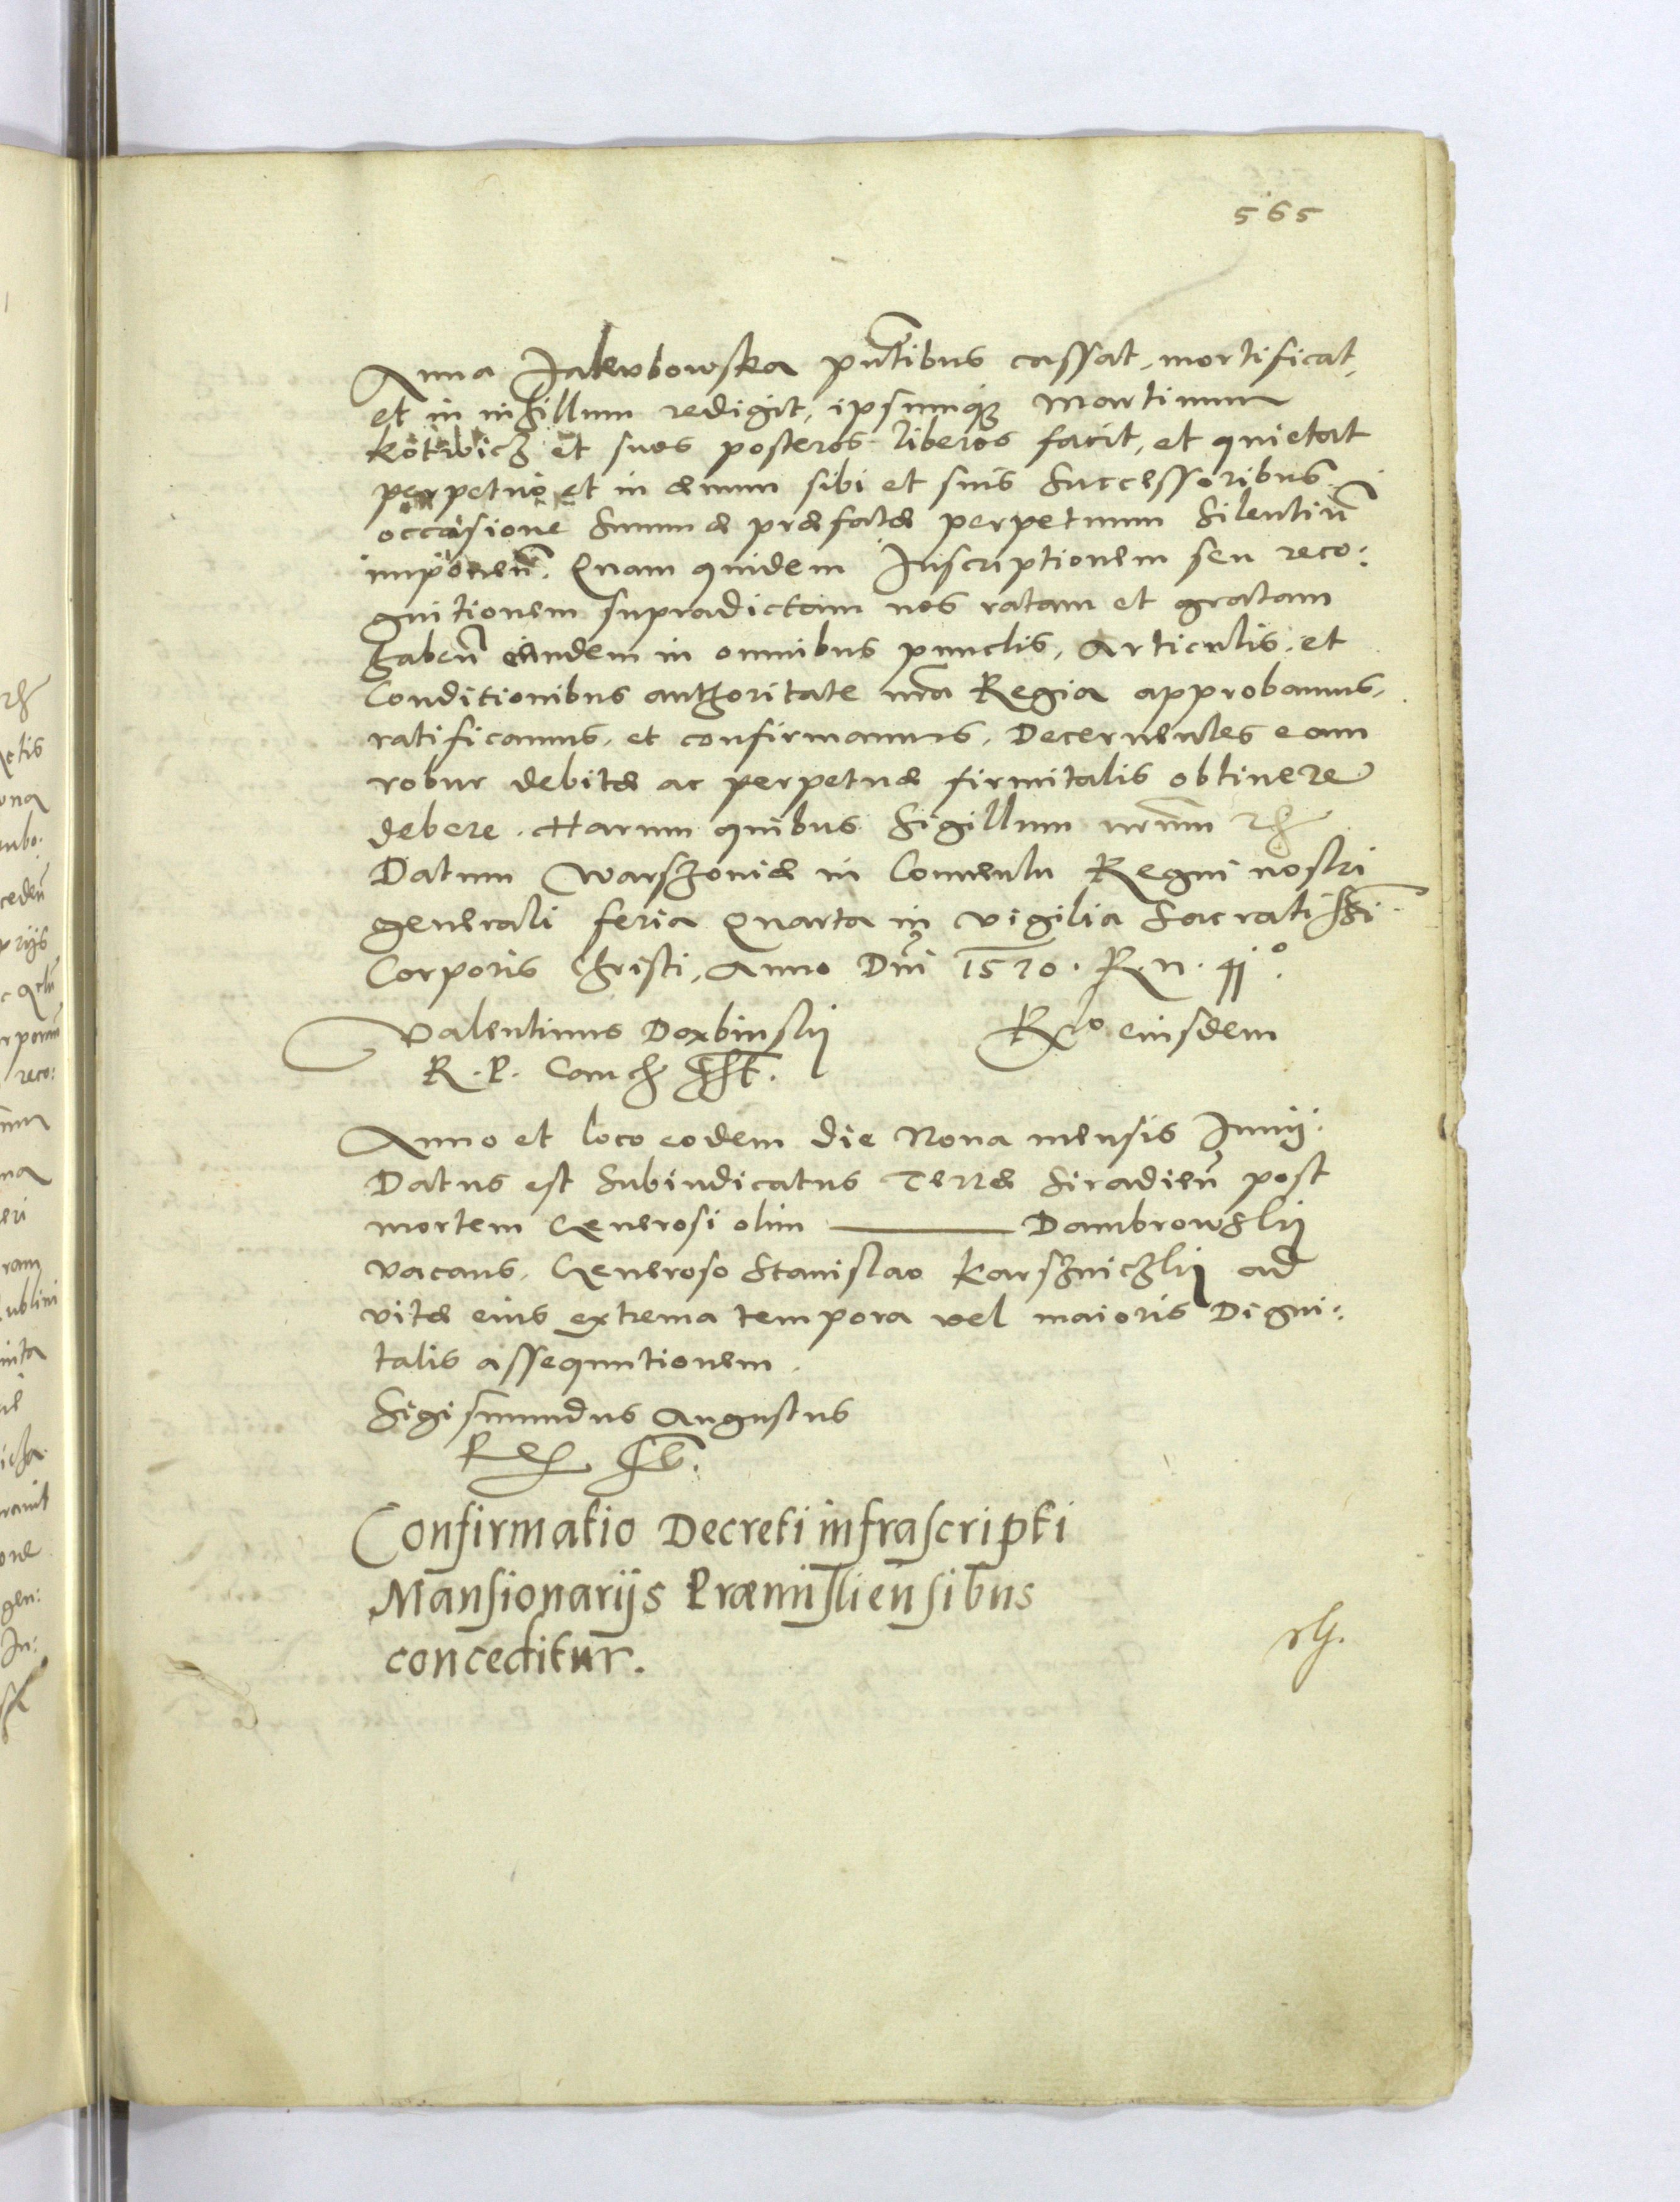 565
Anna Jakubowska pntibus cassat, mortificat,
et in nihillum redigit, ipsumq3 Martinum
Kotwicz et suos posteros liberos facit, et quietat
perpetuo et in æuum sibi et suis Successoribus
occasione Summæ præfatæ perpetuum Silentiu
imponen. Quam quidem Inscriptionem seu reco:
gnitionem supradictam nos ratam et gratam
haben eandem in omnibus punctis, Articulis, et
Conditionibus authoritate nra Regia approbamus,
ratificamus, et confirmamus, Decernentes eam
robur debitæ ac perpetuæ firmitatis obtinere
debere. Harum quibus Sigillum nrum
Datum Warszoviæ in Conventu Regni nostri
generali feria Quarta in vigilia Sacratissi
Corporis Christi, Anno Dni 1570. R. n. 41°.
Valentinus Dembinskij Rlo eiusdem
R. P. Canch sst.
Anno et loco eodem die Nona mensis Junij.
Datus est Subiudicatus Terræ Siradien post
mortem Generosi olim ——— Dambrowskij
vacans, Generoso Stanislao Karszniczkij ad
vitæ eius extrema tempora vel maioris Digni:
tatis assequutionem.
Sigismundus Augustus
Rex sst.
Confirmatio Decreti infrascripti
Mansionarijs Præmisliensibus
conceditur.